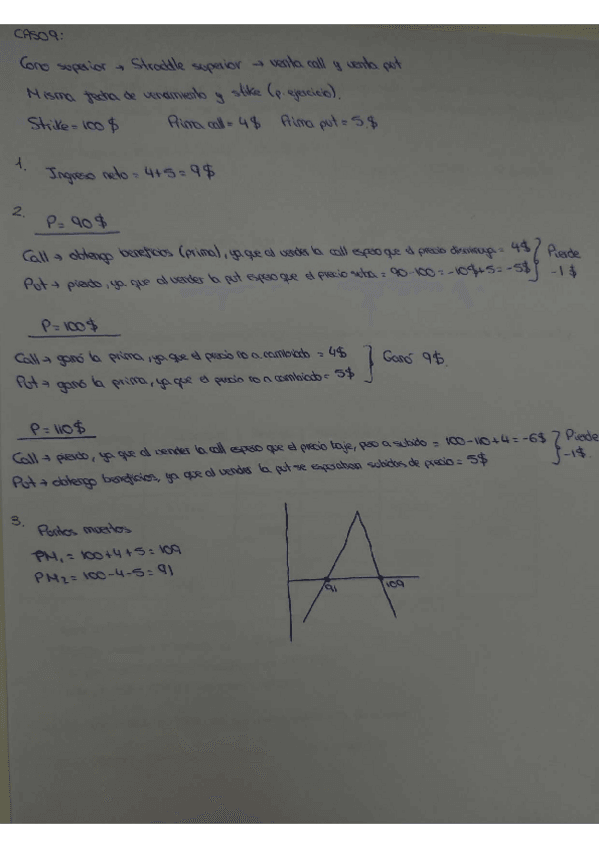 CASO 9:
Cono superior → Straddle superior → venta call y venta put
Misma fecha de vencimiento y stike (p. ejercicio).
Strike = 100$ Prima call = 4$ Prima put = 5$
1.
Ingreso neto = 4+5 = 9$
2.
P = 90$
Call → obtengo beneficios (prima), ya que al vender la call espero que el precio disminuya = 4$ } Pierde
Put → pierdo, ya que al vender la put espero que el precio suba = 90-100 = -10$+5 = -5$ } -1$
P = 100$
Call → ganó la prima, ya que el precio no a cambiado = 4$ } Ganó 9$
Put → ganó la prima, ya que el precio no a cambiado = 5$
P = 110$
Call → pierdo, ya que al vender la call espero que el precio baje, pero a subido = 100-110+4 = -6$ } Pierde
Put → obtengo beneficios, ya que al vender la put se esperaban subidas de precio = 5$ } -1$
3.
Puntos muertos
PM₁ = 100+4+5 = 109
PM₂ = 100-4-5 = 91
91 109